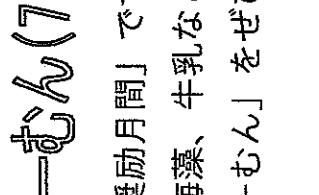 ーむん(7
励月間」で
海藻、牛乳な
ーむん」をぜ